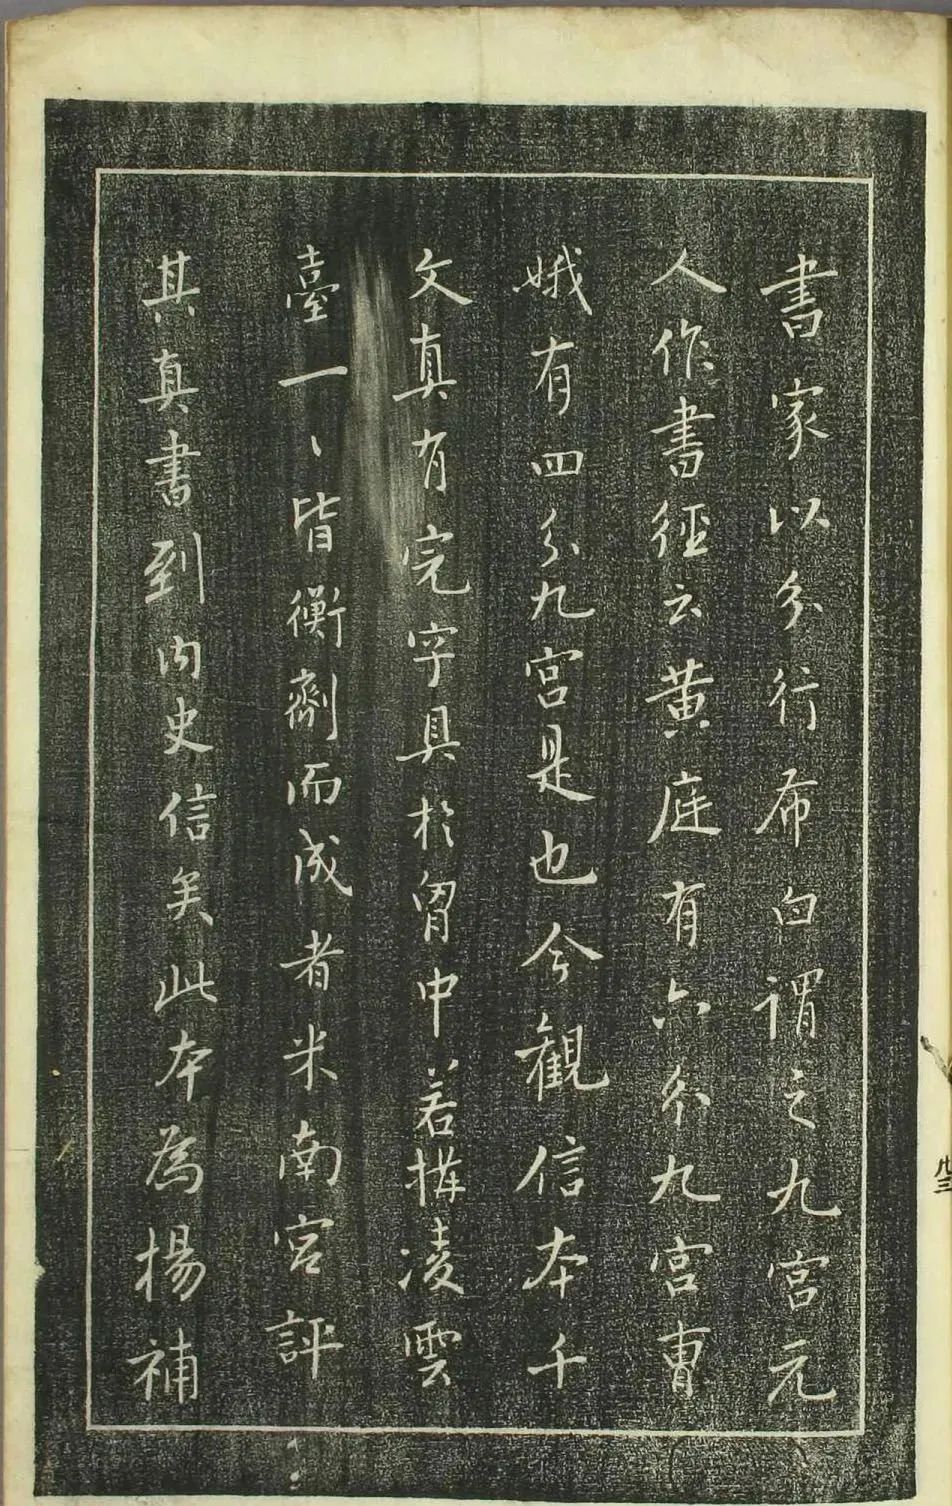 書家以分行布白謂之九宮元
人作書徑云黄庭有六分九宮曹
娥有四分九宮是也今觀信本千
文真有完字具於胷中若構凌雲
臺一〻皆衡劑而成者米南宮評
其真書到内史信矣此本為楊補